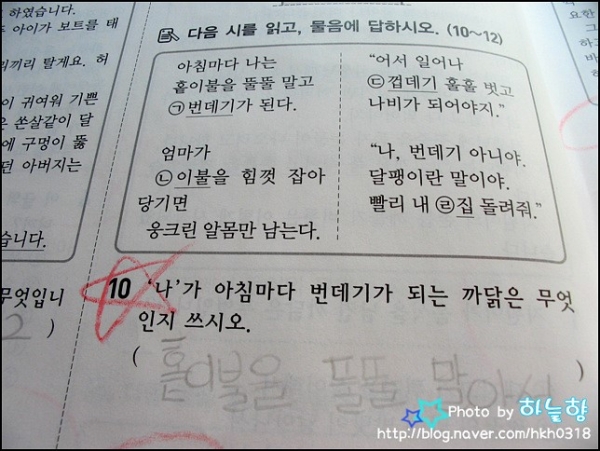 하였습니다.
아이가 보트를 태
끼리 탈게요. 허
이 귀여워 기쁜
은 쏜살같이 달
에 구멍이 뚫
던 아버지는
습니다.
무엇입니
2 )
다음 시를 읽고, 물음에 답하시오. (10~12)
아침마다 나는
홑이불을 뚤뚤 말고
㉠번데기가 된다.
엄마가
㉡이불을 힘껏 잡아
당기면
웅크린 알몸만 남는다.
"어서 일어나
㉢껍데기 훌훌 벗고
나비가 되어야지."
"나, 번데기 아니야.
달팽이란 말이야.
빨리 내 ㉣집 돌려줘."
10 '나'가 아침마다 번데기가 되는 까닭은 무엇
인지 쓰시오.
( 혿이불을 뚤뚤 말아서 )
Photo by 하늘향
http://blog.naver.com/hkh0318